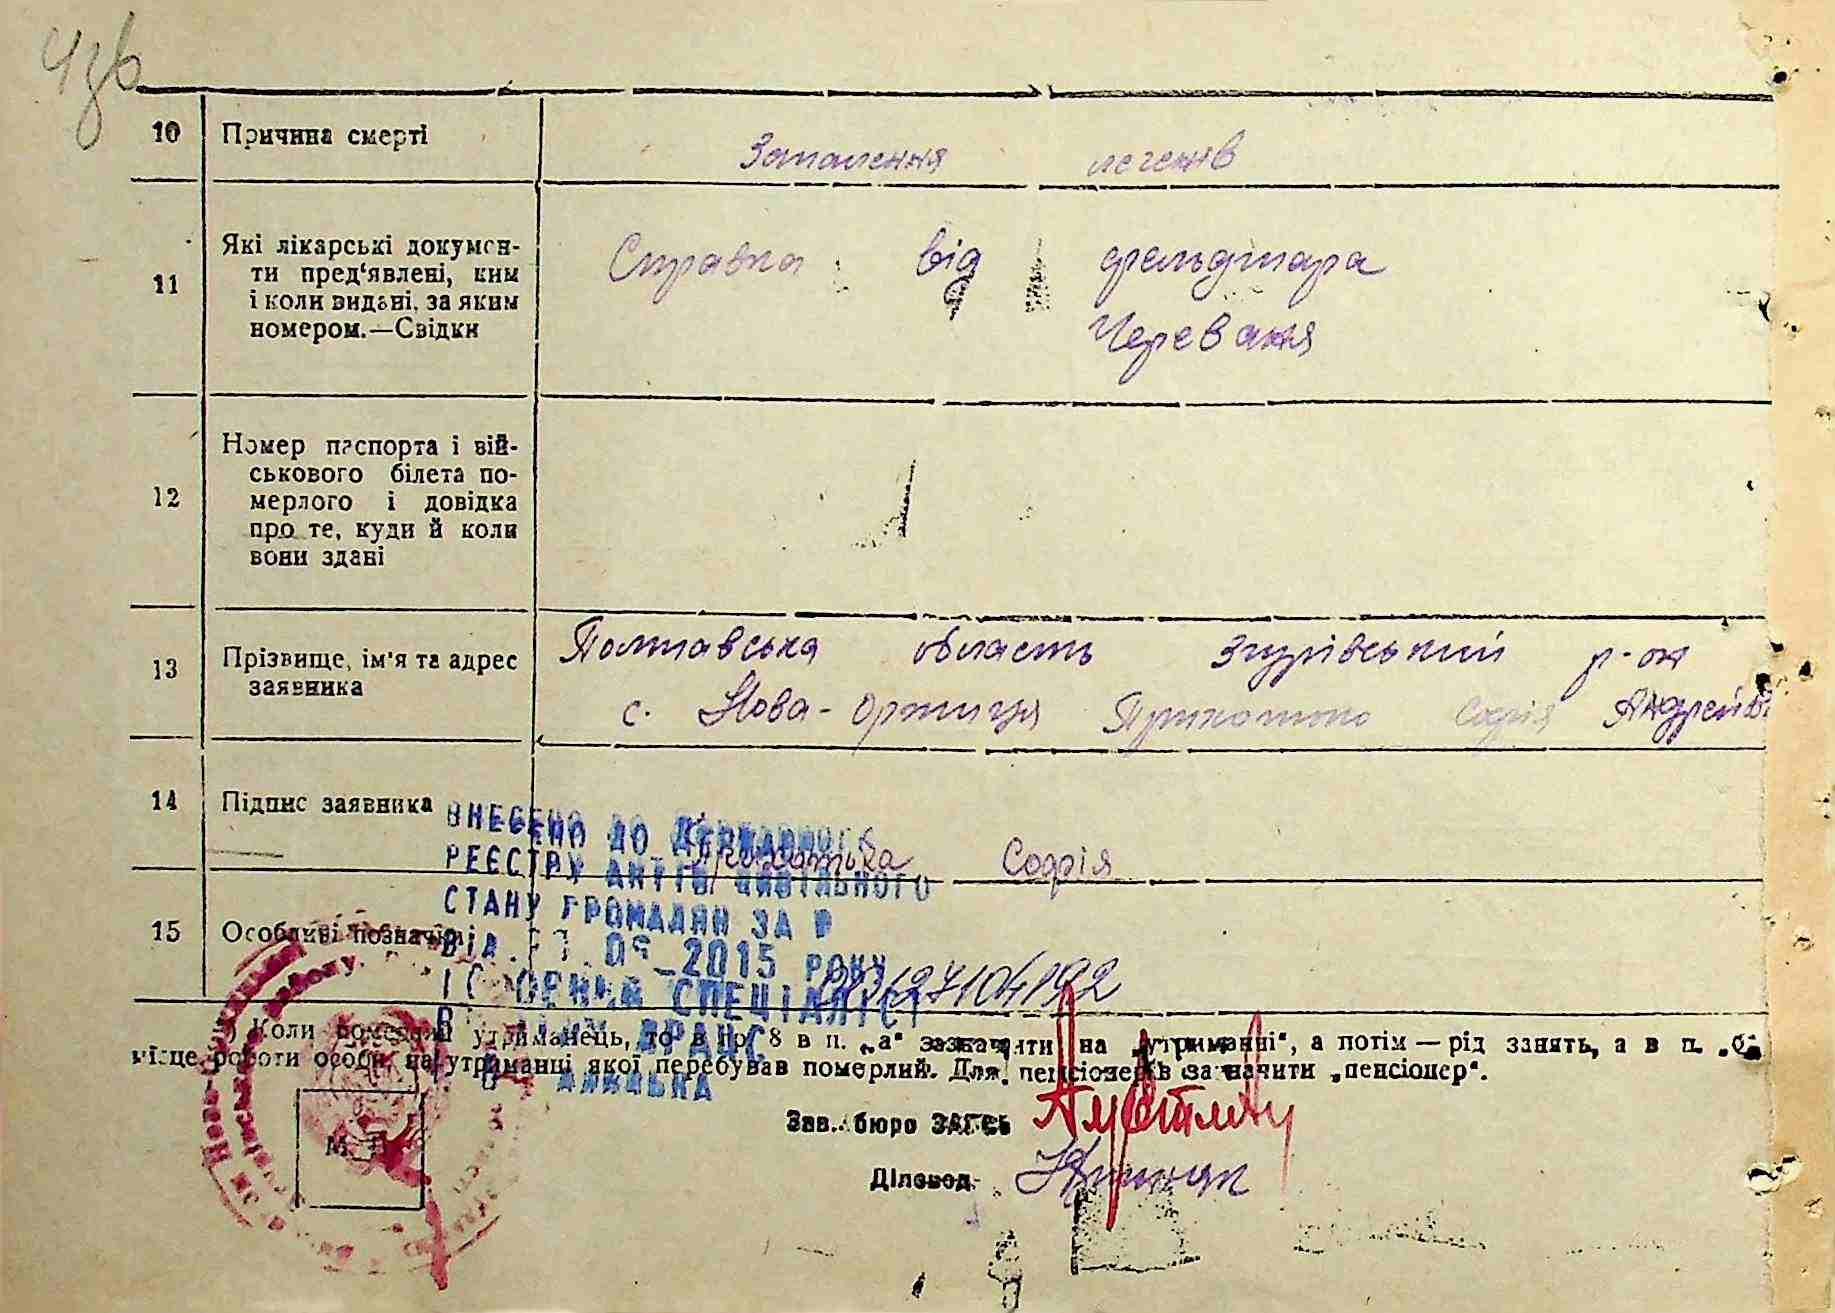 4зв
10 Причина смерті
Запалення легенів
11 Які лікарські докумен-
ти пред'явлені, ким
і коли видані, за яким
номером.—Свідки
Справка від фельдшара
Череваня
12 Номер паспорта і вій-
ськового білета по-
мерлого і довідка
про те, куди й коли
вони здані
13 Прізвище, ім'я та адрес
заявника
Полтавська область Згурівський р-он
с. Нова-Оржиця Софія Андреїв
14 Підпис заявника
Софія
15 Особливі позначки
ВНЕСЕНО ДО ДЕРЖАВНОГО
РЕЄСТРУ АКТІВ ЦИВІЛЬНОГО
СТАНУ ГРОМАДЯН ЗА №
ВІД 05 2015 РОКУ
СПЕЦІАЛІСТ
ДРАЦС
Коли померлий утриманець, то в гр. 8 в п. „а“ зазначити на „утриманні“, а потім — рід занять, а в п. „б“
місце роботи особи, на утриманні якої перебував померлий. Для пенсіонерів зазначити „пенсіонер“.
Зав. бюро ЗАГСь
Діловод
М. П.